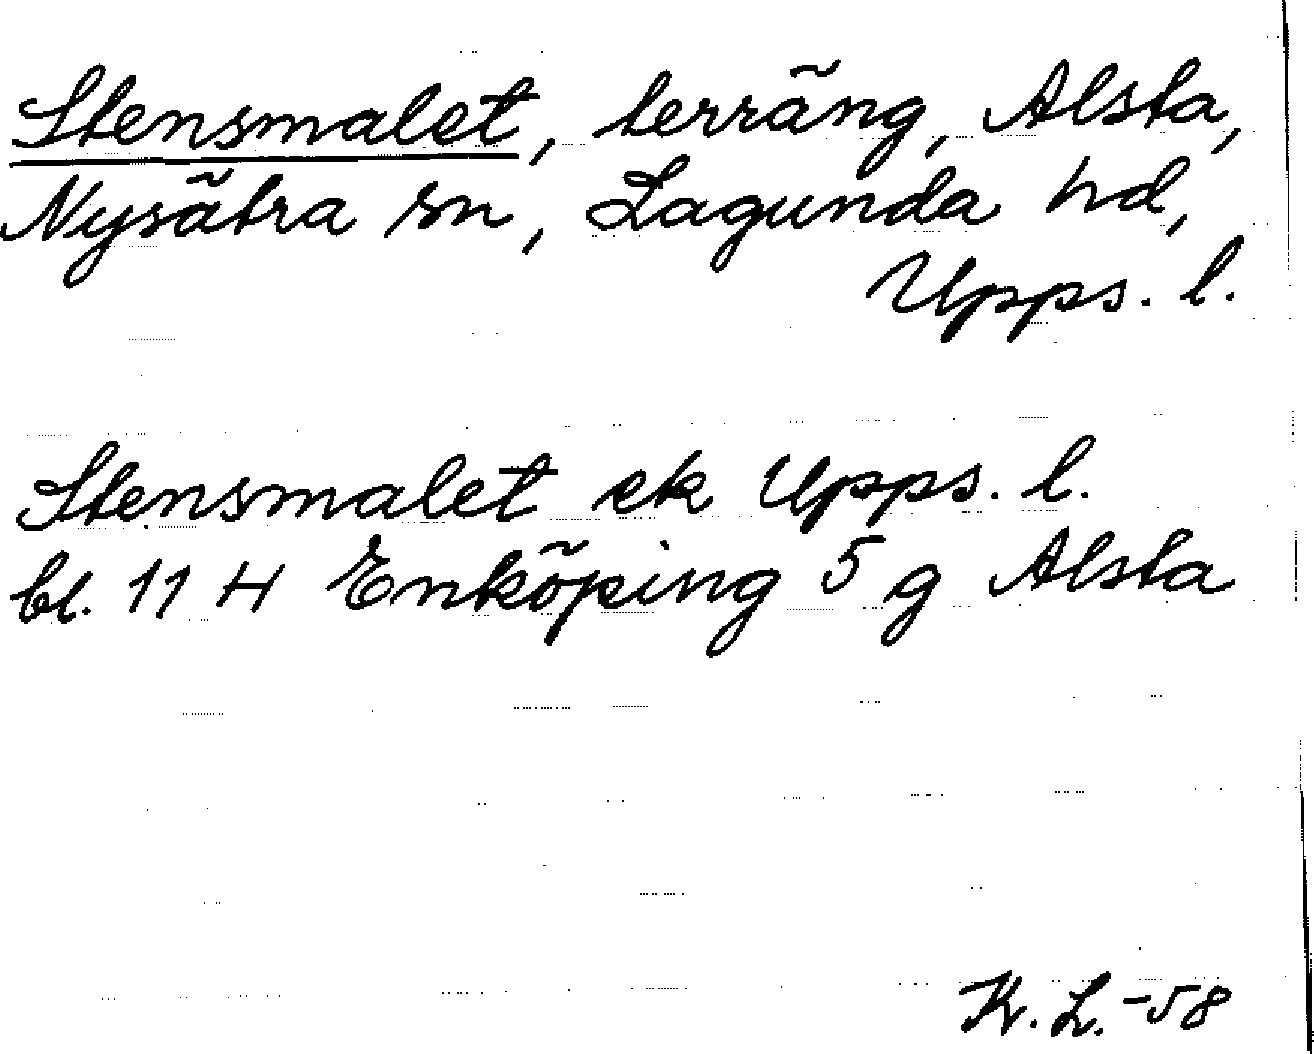 Stensmalet, terräng, Alsta,
Nysätra sn, Lagunda hd,
Upps. l.
Stensmalet ek Upps. l.
bl. 11 H Enköping 5 g Alsta
K. L. -58